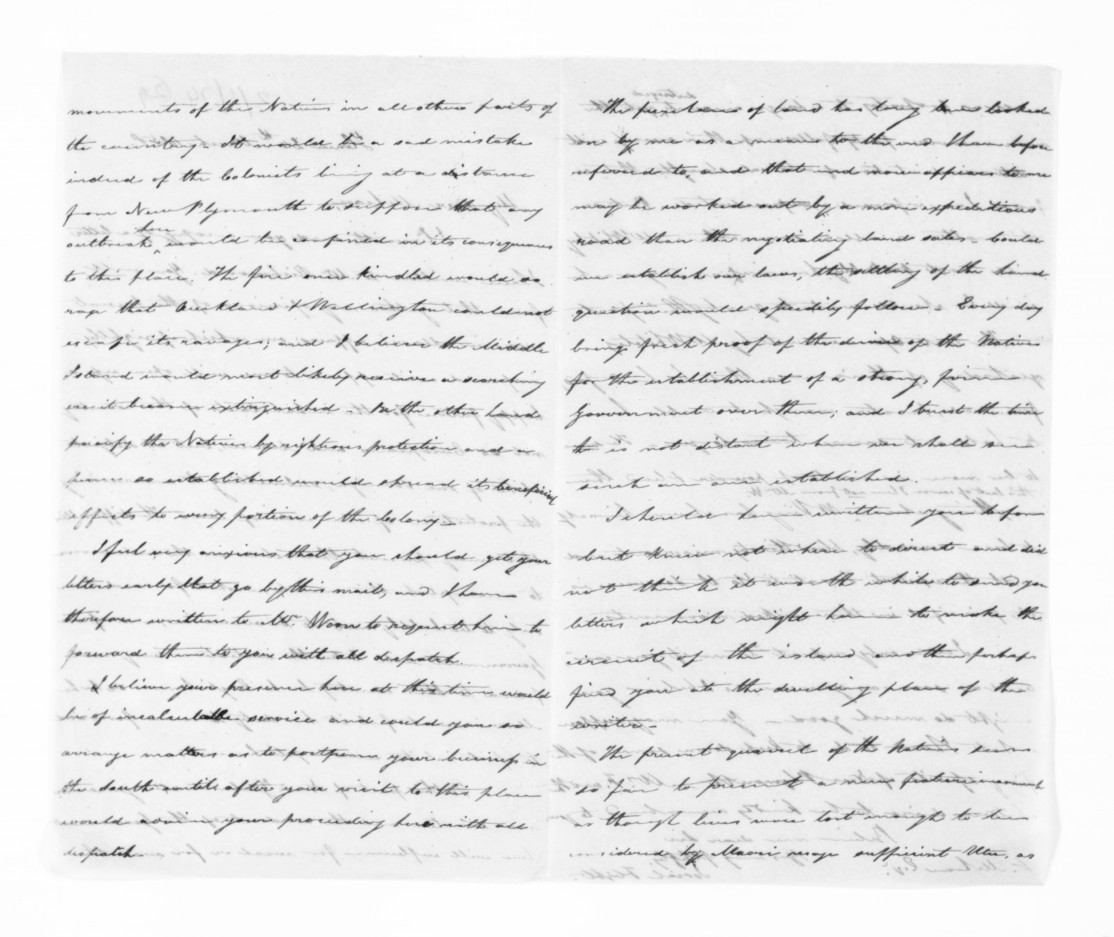 movements of the Natives in all other parts of
the country. It would be a sad mistake
indeed of the Colonists living at a distance
from New Plymouth to suppose that any
outbreak here would be confined in its consequences
to this place. The fire once kindled would so
rage that Auckland & Wellington could not
escape its ravages; and I believe the Middle
Island would most likely receive a scorching
ere it became extinguished. On the other hand
pacify the Natives by righteous protection and a
peace so established would spread its beneficial
effects to every portion of the Colony.
I feel very anxious that you should get your
letters early that go by this mail, and I have
therefore written to Mr. Woon to request him to
forward them to you with all despatch.
I believe your presence here at this time would
be of incalculable service and could you so
arrange matters as to postpone your business in
the South until after your visit to this place
would advise your proceeding here with all
despatch.
The purchase of land has long been looked
on by me as a means to the end I have before
referred to, and that end now appears to me
may be worked out by a more expeditious
road than the negotiating land sales. Could
we establish our laws, the settling of the land
question would speedily follow. Every day
brings fresh proof of the desire of the Natives
for the establishment of a strong, firm
Government over them; and I trust the time
is not distant when we shall see
such an one established.
I should have written you before
but knew not where to direct and did
not think it worth while to send you
letters which might have to make the
circuit of the island and then perhaps
find you at the dwelling place of the
writer.
The present quarrel of the Natives seems
so fair to present a new feature inasmuch
as though lives were lost enough to be
considered by Maori usage sufficient Utu, as